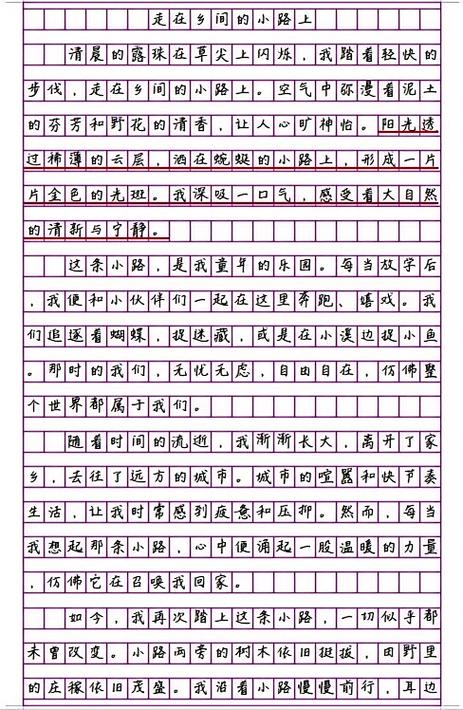 走在乡间的小路上
清晨的露珠在草尖上闪烁，我踏着轻快的
步伐，走在乡间的小路上。空气中弥漫着泥土
的芬芳和野花的清香，让人心旷神怡。阳光透
过稀薄的云层，洒在蜿蜒的小路上，形成一片
片金色的光斑。我深吸一口气，感受着大自然
的清新与宁静。
这条小路，是我童年的乐园。每当放学后
，我便和小伙伴们一起在这里奔跑、嬉戏。我
们追逐着蝴蝶，捉迷藏，或是在小溪边捉小鱼
。那时的我们，无忧无虑，自由自在，仿佛整
个世界都属于我们。
随着时间的流逝，我渐渐长大，离开了家
乡，去往了远方的城市。城市的喧嚣和快节奏
生活，让我时常感到疲惫和压抑。然而，每当
我想起那条小路，心中便涌起一股温暖的力量
，仿佛它在召唤我回家。
如今，我再次踏上这条小路，一切似乎都
未曾改变。小路两旁的树木依旧挺拔，田野里
的庄稼依旧茂盛。我沿着小路慢慢前行，耳边